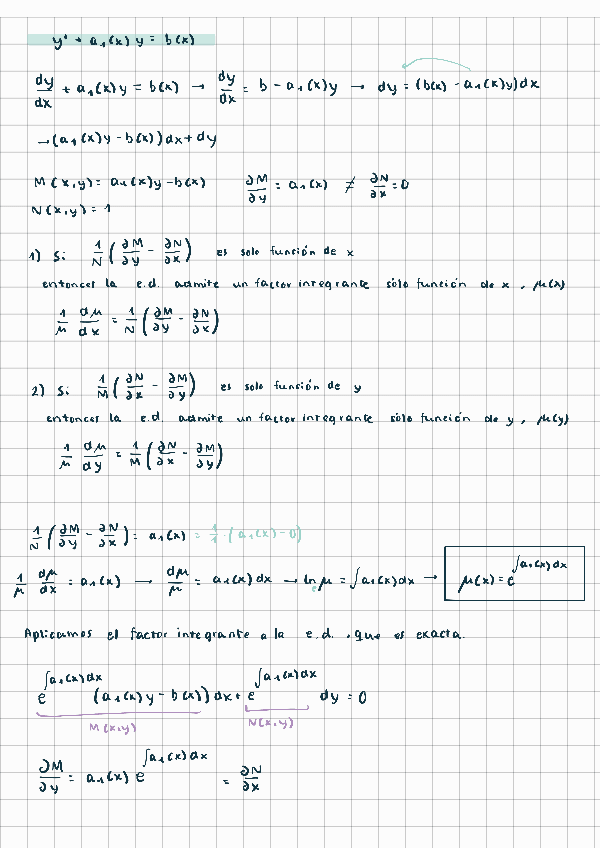 y' + a₁(x) y = b(x)
dy/dx + a₁(x)y = b(x) → dy/dx = b - a₁(x)y → dy = (b(x) - a₁(x)y)dx
→ (a₁(x)y - b(x))dx + dy
M(x,y) = a₁(x)y - b(x) ∂M/∂y = a₁(x) ≠ ∂N/∂x = 0
N(x,y) = 1
1) Si 1/N (∂M/∂y - ∂N/∂x) es solo función de x
entonces la e.d. admite un factor integrante sólo función de x, μ(x)
1/μ dμ/dx = 1/N (∂M/∂y - ∂N/∂x)
2) Si 1/M (∂N/∂x - ∂M/∂y) es solo función de y
entonces la e.d. admite un factor integrante sólo función de y, μ(y)
1/μ dμ/dy = 1/M (∂N/∂x - ∂M/∂y)
1/N (∂M/∂y - ∂N/∂x) = a₁(x) = 1/1 · (a₁(x) - 0)
1/μ dμ/dx = a₁(x) → dμ/μ = a₁(x)dx → ln μ = ∫a₁(x)dx → μ(x) = e^∫a₁(x)dx
Aplicamos el factor integrante a la e.d. , que es exacta.
e^∫a₁(x)dx (a₁(x)y - b(x))dx + e^∫a₁(x)dx dy = 0
M(x,y) N(x,y)
∂M/∂y = a₁(x) e^∫a₁(x)dx = ∂N/∂x